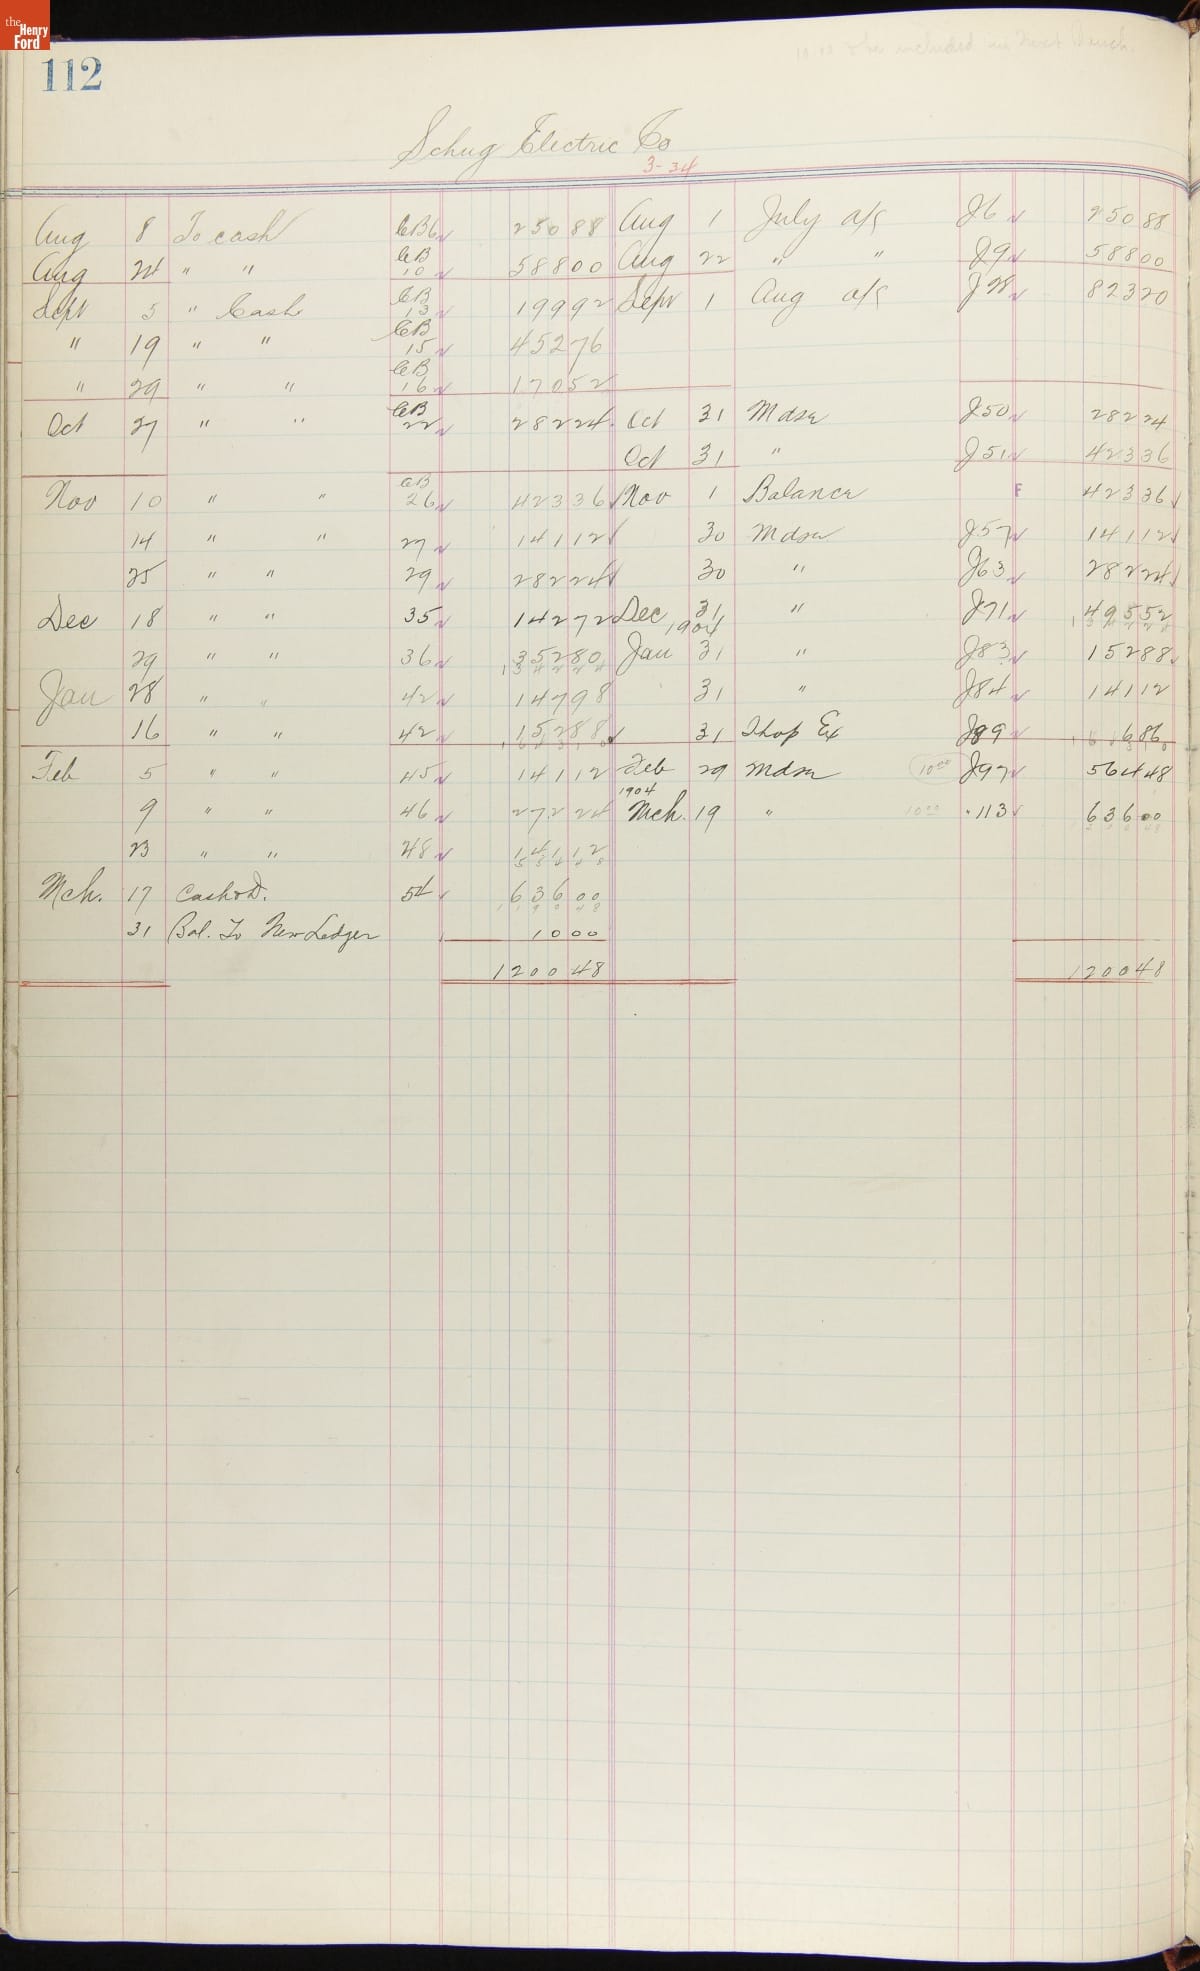 the Henry Ford
112
included in next
Schug Electric Co
3-34
Aug 8 To cash CB6 250 88 Aug 1 July a/c J6 250 88
Aug 24 " " CB 10 588 00 Aug 22 " " J9 588 00
Sept 5 " Cash CB 13 199 92 Sept 1 Aug a/c J28 823 20
" 19 " " CB 15 452 76
" 29 " " CB 16 170 52
Oct 27 " " CB 22 282 24 Oct 31 Mdse J50 282 24
Oct 31 " J51 423 36
Nov 10 " " CB 26 423 36 Nov 1 Balance F 423 36
14 " " 27 141 12 30 Mdse J57 141 12
25 " " 29 282 24 30 " J63 282 24
Dec 18 " " 35 142 72 Dec 31 " J71 495 52
1904
29 " " 36 352 80 Jan 31 " J83 152 88
Jan 28 " " 42 147 98 31 " J84 141 12
16 " " 42 152 88 31 Shop Ex J89 6 86
Feb 5 " " 45 141 12 Feb 29 Mdse 10 00 J97 564 48
1904
9 " " 46 272 24 Mch. 19 " 10 00 " 113 636 00
23 " " 48 141 12
Mch. 17 Cash & D. 54 636 00
31 Bal. To New Ledger 10 00
1200 48 1200 48